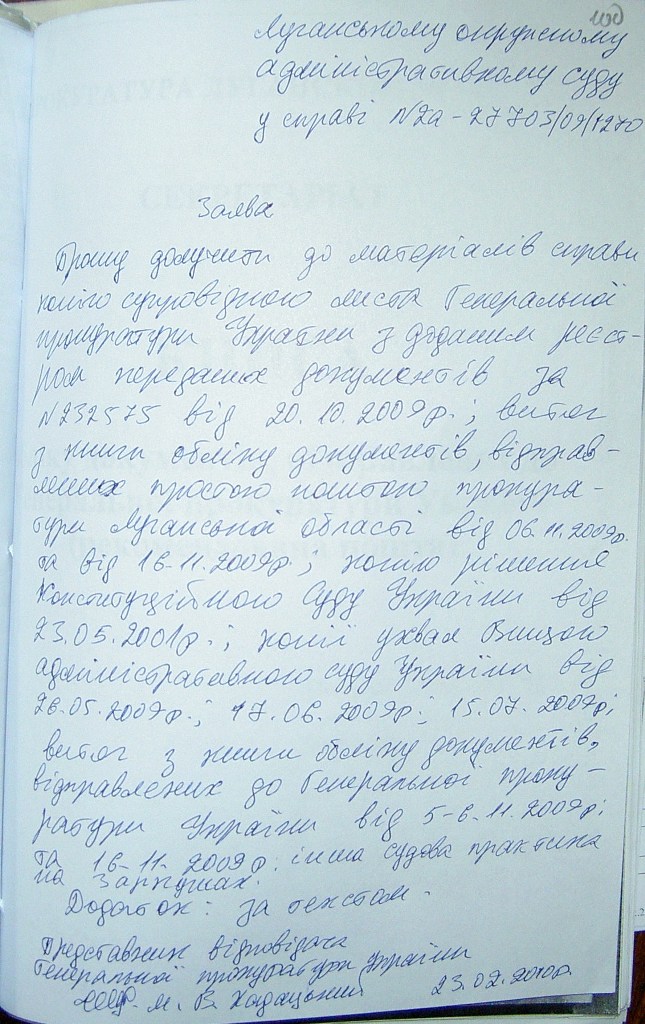 Луганському окружному
адміністративному суду
у справі №2а-27703/09/1270
Заява
Прошу долучити до матеріалів справи
копію супровідного листа Генеральної
прокуратури України з доданим реєст-
ром переданих документів за
№232575 від 20.10.2009р.; витяг
з книги обліку документів, відправ-
лених простою поштою прокура-
тури Луганської області від 06.11.2009р.
та від 16.11.2009р.; копію рішення
Конституційного Суду України від
23.05.2001р.; копії ухвал Вищого
адміністративного суду України від
26.05.2009р.; 17.06.2009р; 15.07.2009р;
витяг з книги обліку документів,
відправлених до Генеральної проку-
ратури України від 5-6.11.2009р;
та 16-11.2009р. інша судова практика
на аркушах.
Додаток: за текстом.
Представник відповідача
Генеральної прокуратури України
м. В. Хадацький 23.02.2010р.